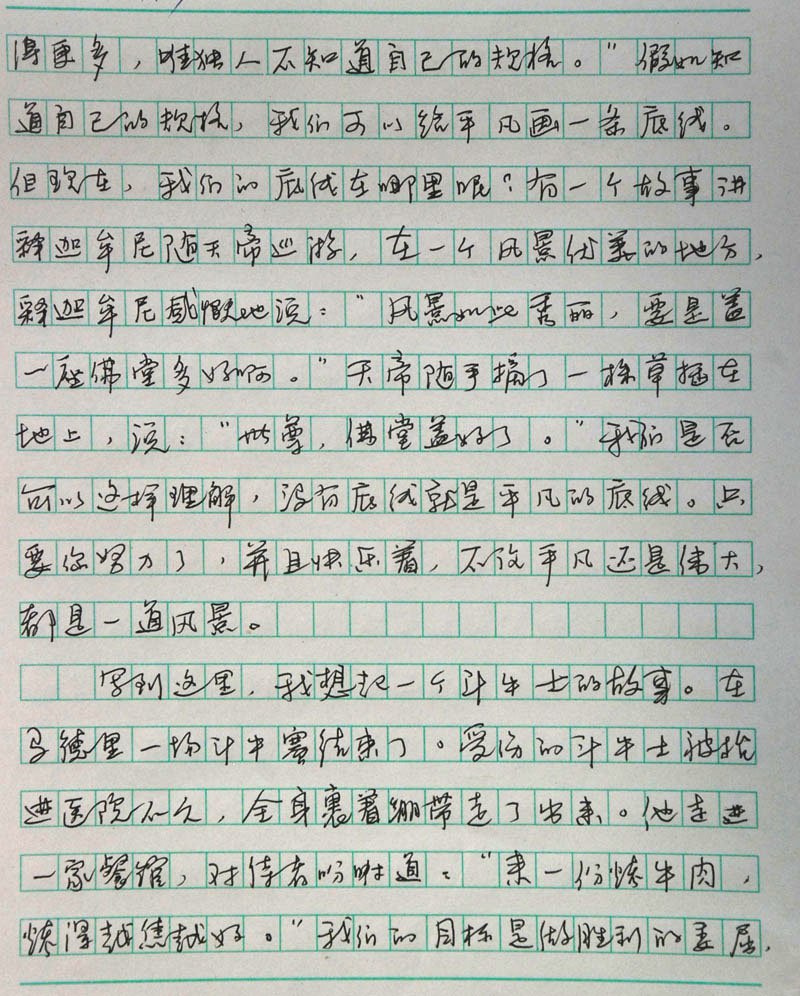 得更多，唯独人不知道自己的规格。"假如知
道自己的规格，我们可以给平凡画一条底线。
但现在，我们的底线在哪里呢？有一个故事讲
释迦牟尼随天帝巡游，在一个风景优美的地方，
释迦牟尼感慨地说："风景如此秀丽，要是盖
一座佛堂多好啊。"天帝随手摘了一株草插在
地上，说："世尊，佛堂盖好了。"我们是否
可以这样理解，没有底线就是平凡的底线。只
要你努力了，并且快乐着，不论平凡还是伟大，
都是一道风景。
写到这里，我想起一个斗牛士的故事。在
马德里一场斗牛赛结束了。受伤的斗牛士被抬
进医院不久，全身裹着绷带走了出来。他走进
一家餐馆，对侍者吩咐道："来一份烤牛肉，
烤得越焦越好。"我们的目标是做胜利的